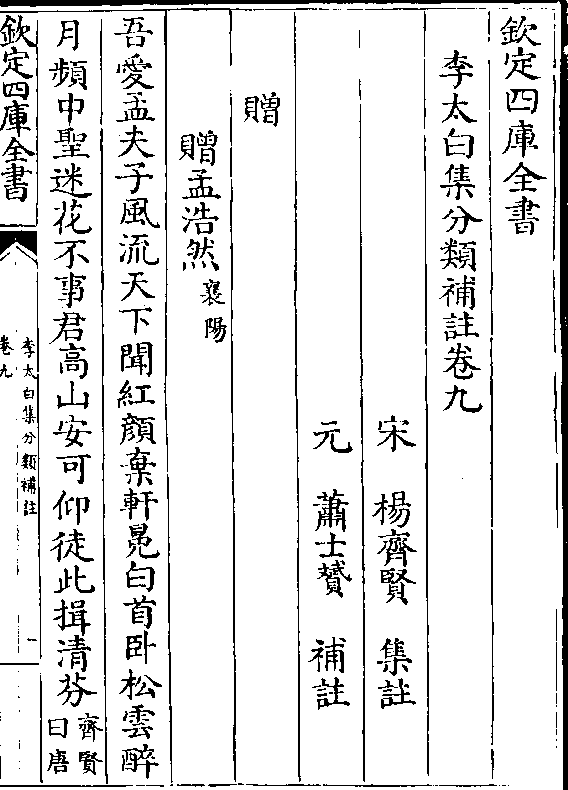 欽定四庫全書
李太白集分類補註卷九
宋 楊齊賢 集註
元 蕭士贇 補註
贈
贈孟浩然襄陽
吾愛孟夫子風流天下聞紅顔棄軒冕白首卧松雲醉
月頻中聖迷花不事君高山安可仰徒此揖清芬齊賢
曰唐
欽定四庫全書
李太白集分類補註
卷九
一